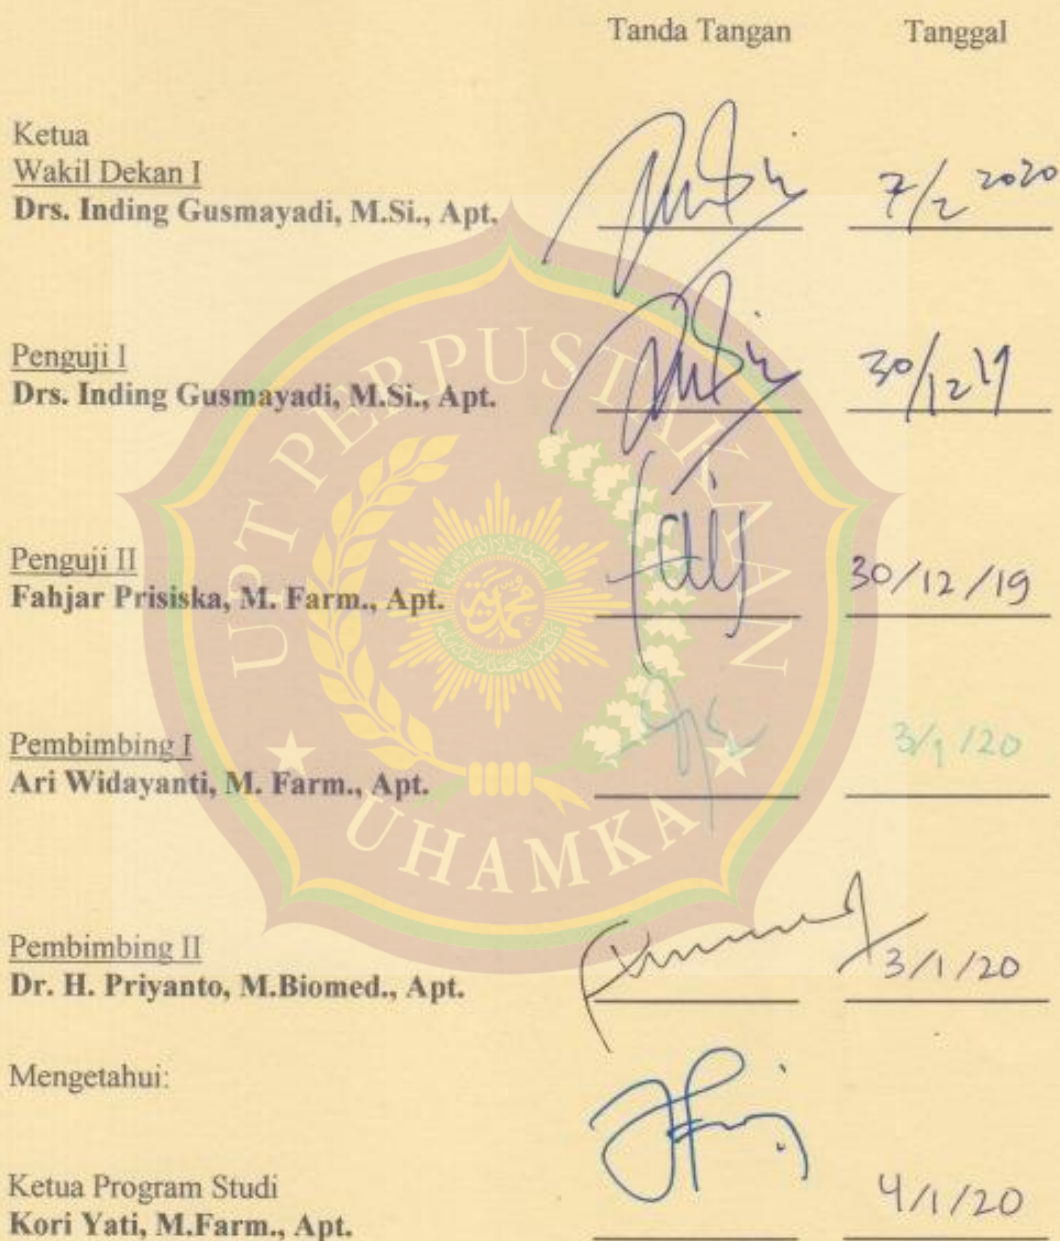 Tanda Tangan Tanggal
Ketua
Wakil Dekan I
Drs. Inding Gusmayadi, M.Si., Apt.
7/2 2020
Penguji I
Drs. Inding Gusmayadi, M.Si., Apt.
30/12 19
Penguji II
Fahjar Prisiska, M. Farm., Apt.
30/12/19
Pembimbing I
Ari Widayanti, M. Farm., Apt.
3/1/20
Pembimbing II
Dr. H. Priyanto, M.Biomed., Apt.
3/1/20
Mengetahui:
Ketua Program Studi
Kori Yati, M.Farm., Apt.
4/1/20
UPT PERPUSTAKAAN
UHAMKA